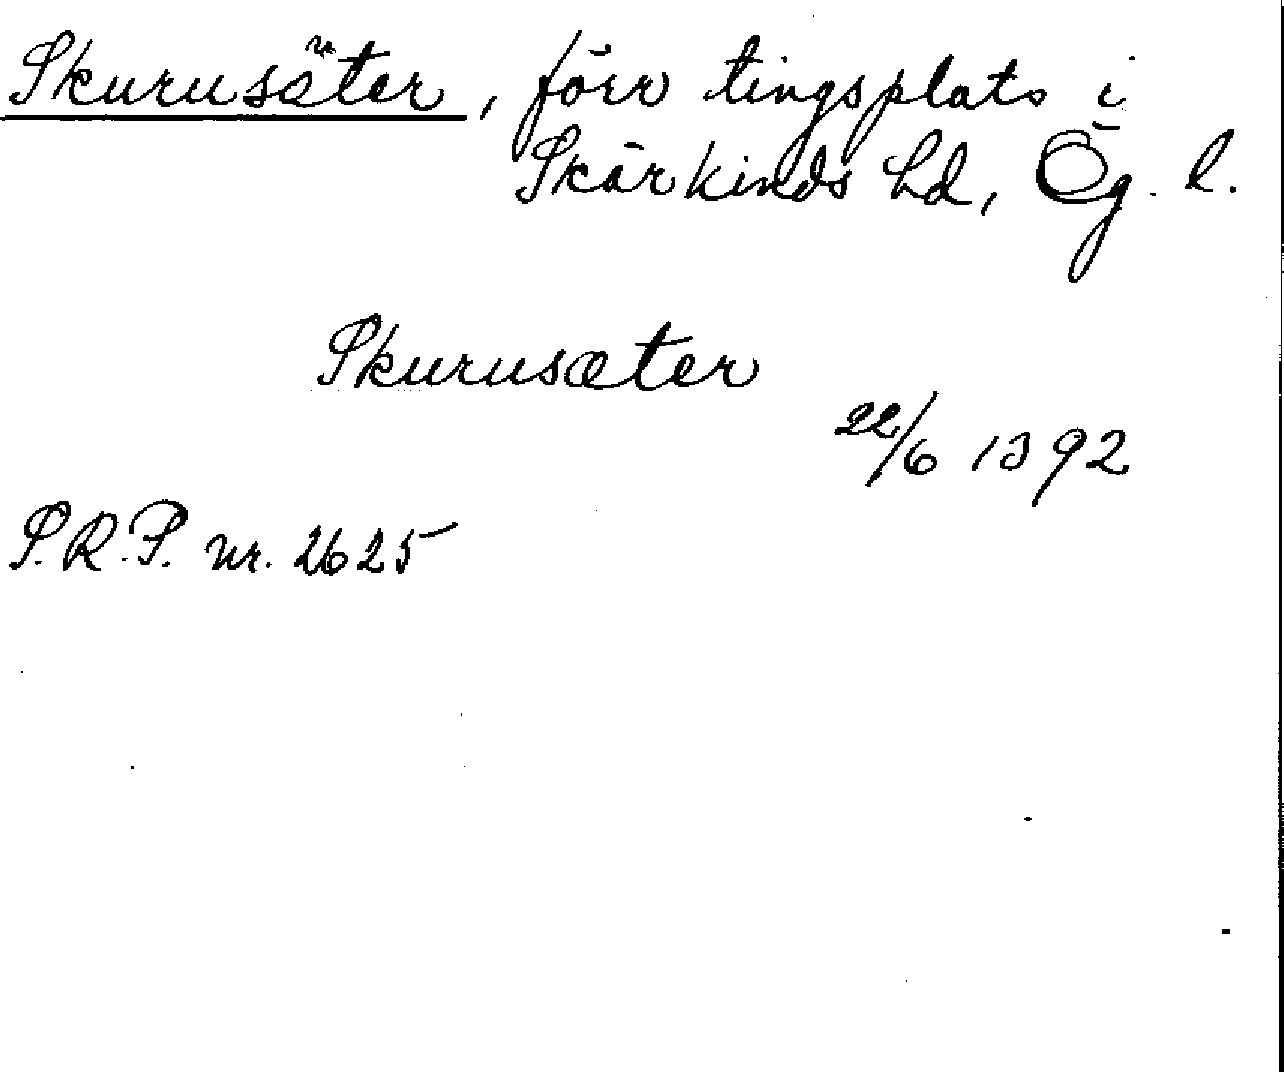 Skurusäter, förr tingsplats i
Skärkinds hd, Ög. l.
Skurusæter
22/6 1392
S.R.P. nr. 2625